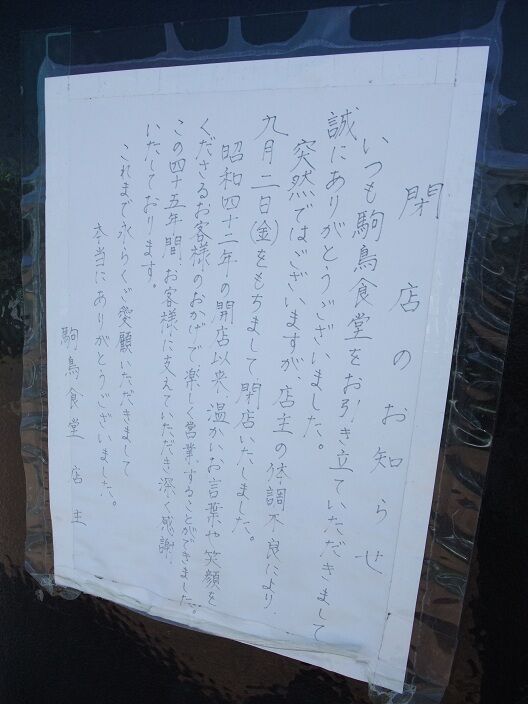 閉店のお知らせ
いつも駒鳥食堂をお引き立ていただきまして
誠にありがとうございました。
突然ではございますが、店主の体調不良により
九月二日(金)をもちまして閉店いたしました。
昭和四十二年の開店以来、温かいお言葉や笑顔を
くださるお客様のおかげで楽しく営業することができました。
この四十五年間、お客様に支えていただき深く感謝
いたしております。
これまで永らくご愛願いただきまして
本当にありがとうございました。
駒鳥食堂 店主